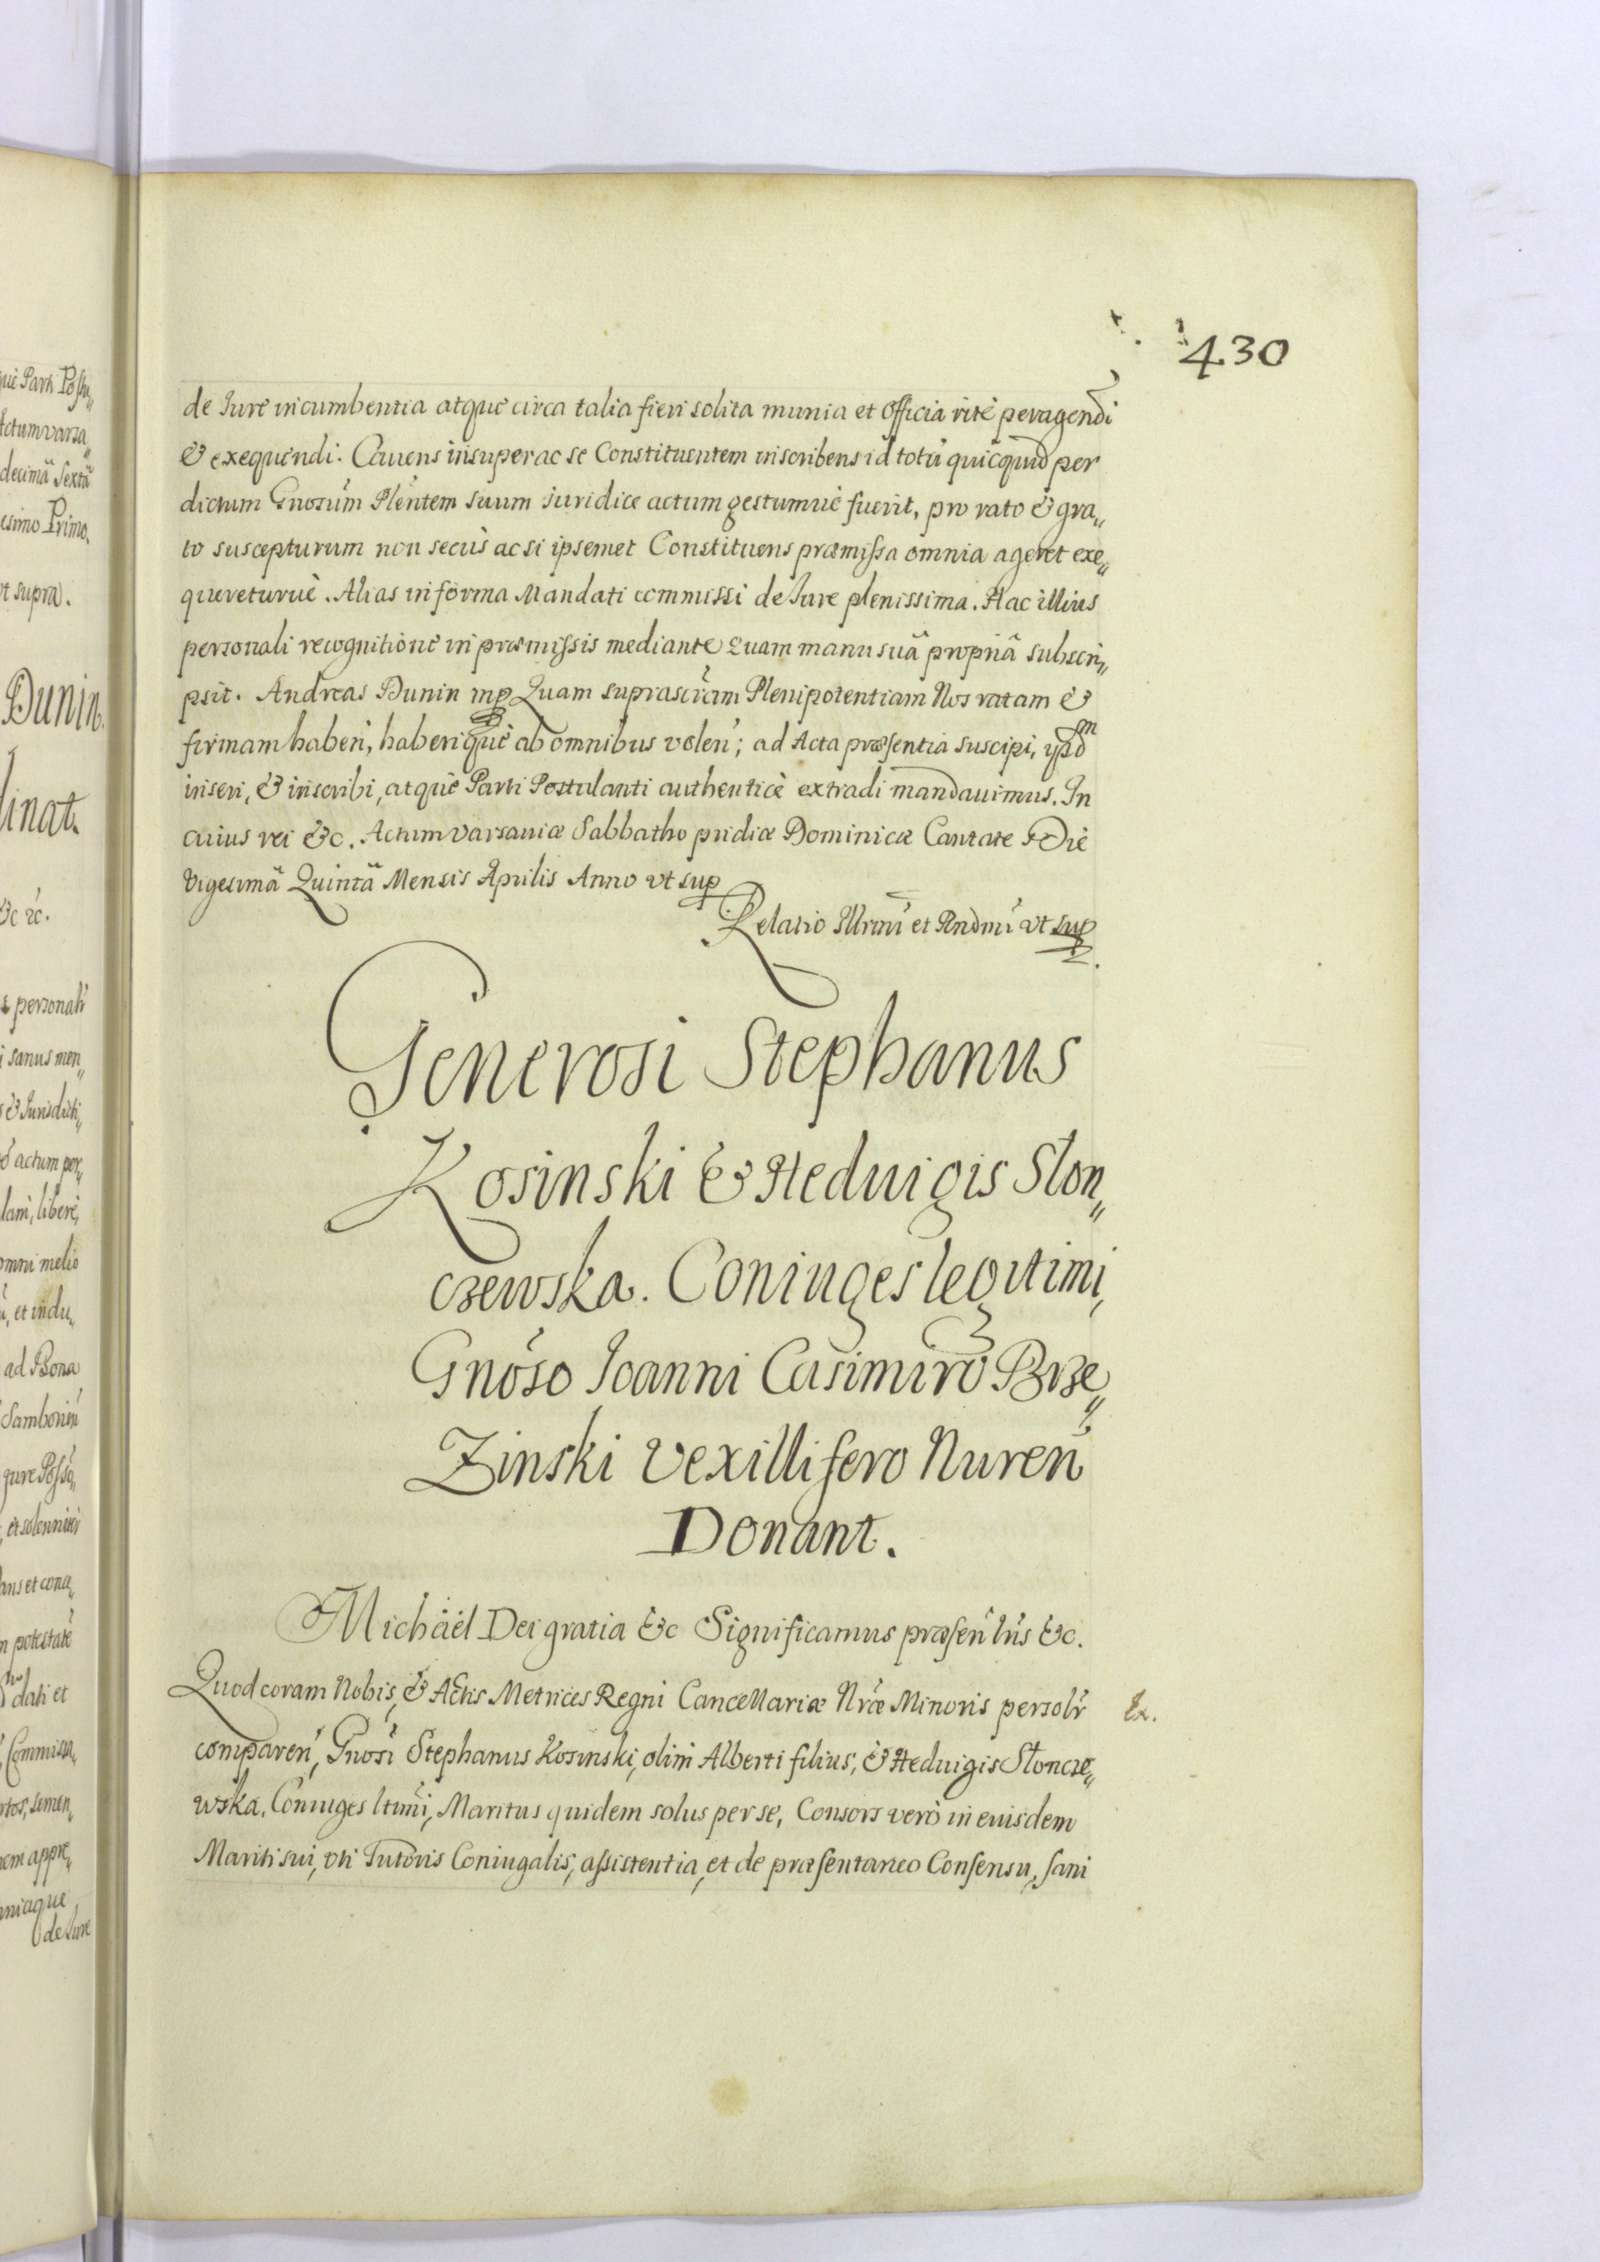 430
de Iure incumbentia atque circa talia fieri solita munia et officia rite peragendi
& exequendi. Cavens insuper ac se Constituentem inscribens id totũ quicquid per
dictum Gnosum Plentem suum iuridice actum gestumuè fuerit, pro rato & gra„
to suscepturum non secùs ac si ipsemet Constituens præmissa omnia ageret exe„
quereturuè. Alias in forma Mandati commissi de Iure plenissima. Hac illius
personali recognitione in præmissis mediante Quam manu suâ propriâ subscri„
psit. Andreas Dunin mp Quam suprascram Plenipotentiam Nos ratam &
firmam haberi, haberiquè ab omnibus volen; ad Acta præsentia suscipi, ijsdm
inseri, & inscribi, atquè Parti Postulanti authenticè extradi mandauimus. In
cuius rei &c. Actum Varsaviæ Sabbatho pridiæ Dominicæ Cantate Diè
Vigesimâ Quintâ Mensis Aprilis Anno vt sup
Relatio Illrmi et Rndmi vt sup
Generosi Stephanus
Kosinski & Heduigis Slon„
czewska. Coniuges legitimi,
Gnoso Ioanni Casimiro Brze„
Zinski Vexillifero Nuren
Donant.
Michäel Dei gratia &c Significamus præsen lris &c.
Quod coram Nobis, & Actis Metrices Regni Cancellariæ Nræ Minoris persolr
comparen, Gnosi Stephanus Kosinski, olim Alberti filius, & Heduigis Sloncze„
wska, Coniuges ltimi, Maritus quidem solus per se, Consors verò in euisdem
Mariti sui, vti Tutoris Coniugalis, assistentia, et de præsentaneo Consensu, sani
Ex.